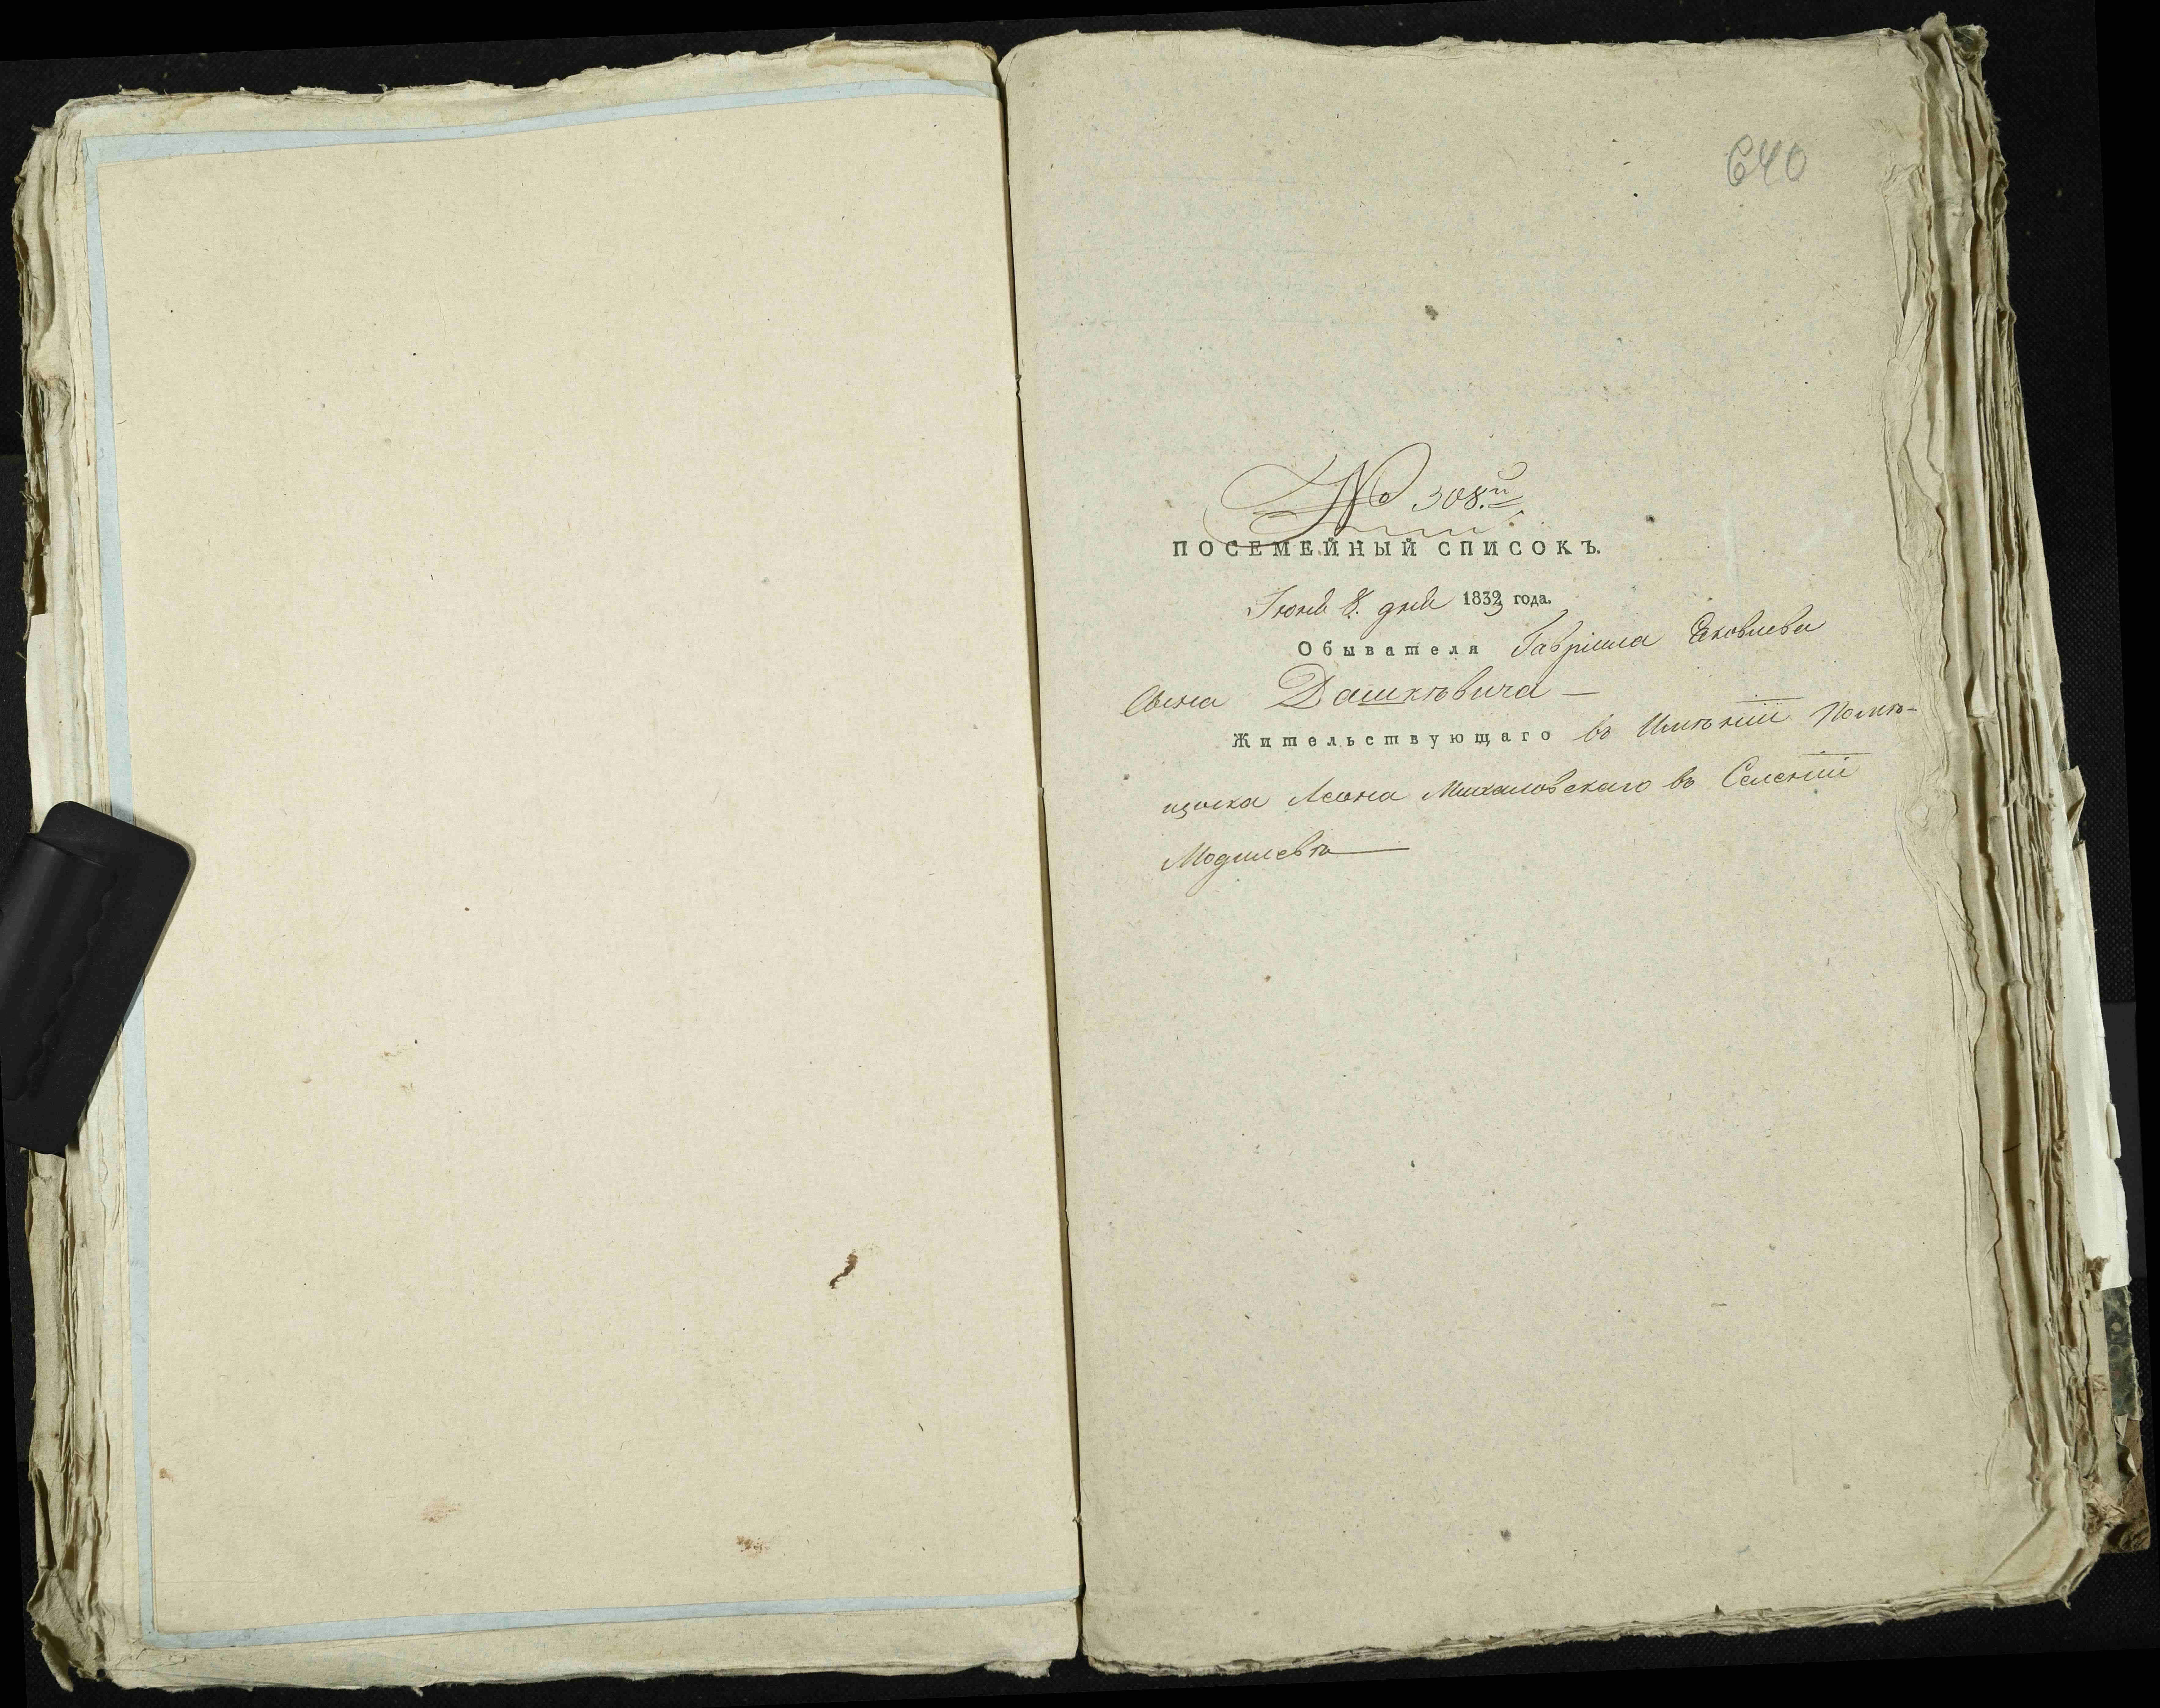 640
№ 308.й
ПОСЕМЕЙНЫЙ СПИСОКЪ.
Іюня 8. дня 1833 года.
Обывателя Гавріила Яковлева
Сына Дашкѣвича —
Жительствующаго въ Имѣніи Помѣ-
щика Леона Михаловскаго въ Селеніи